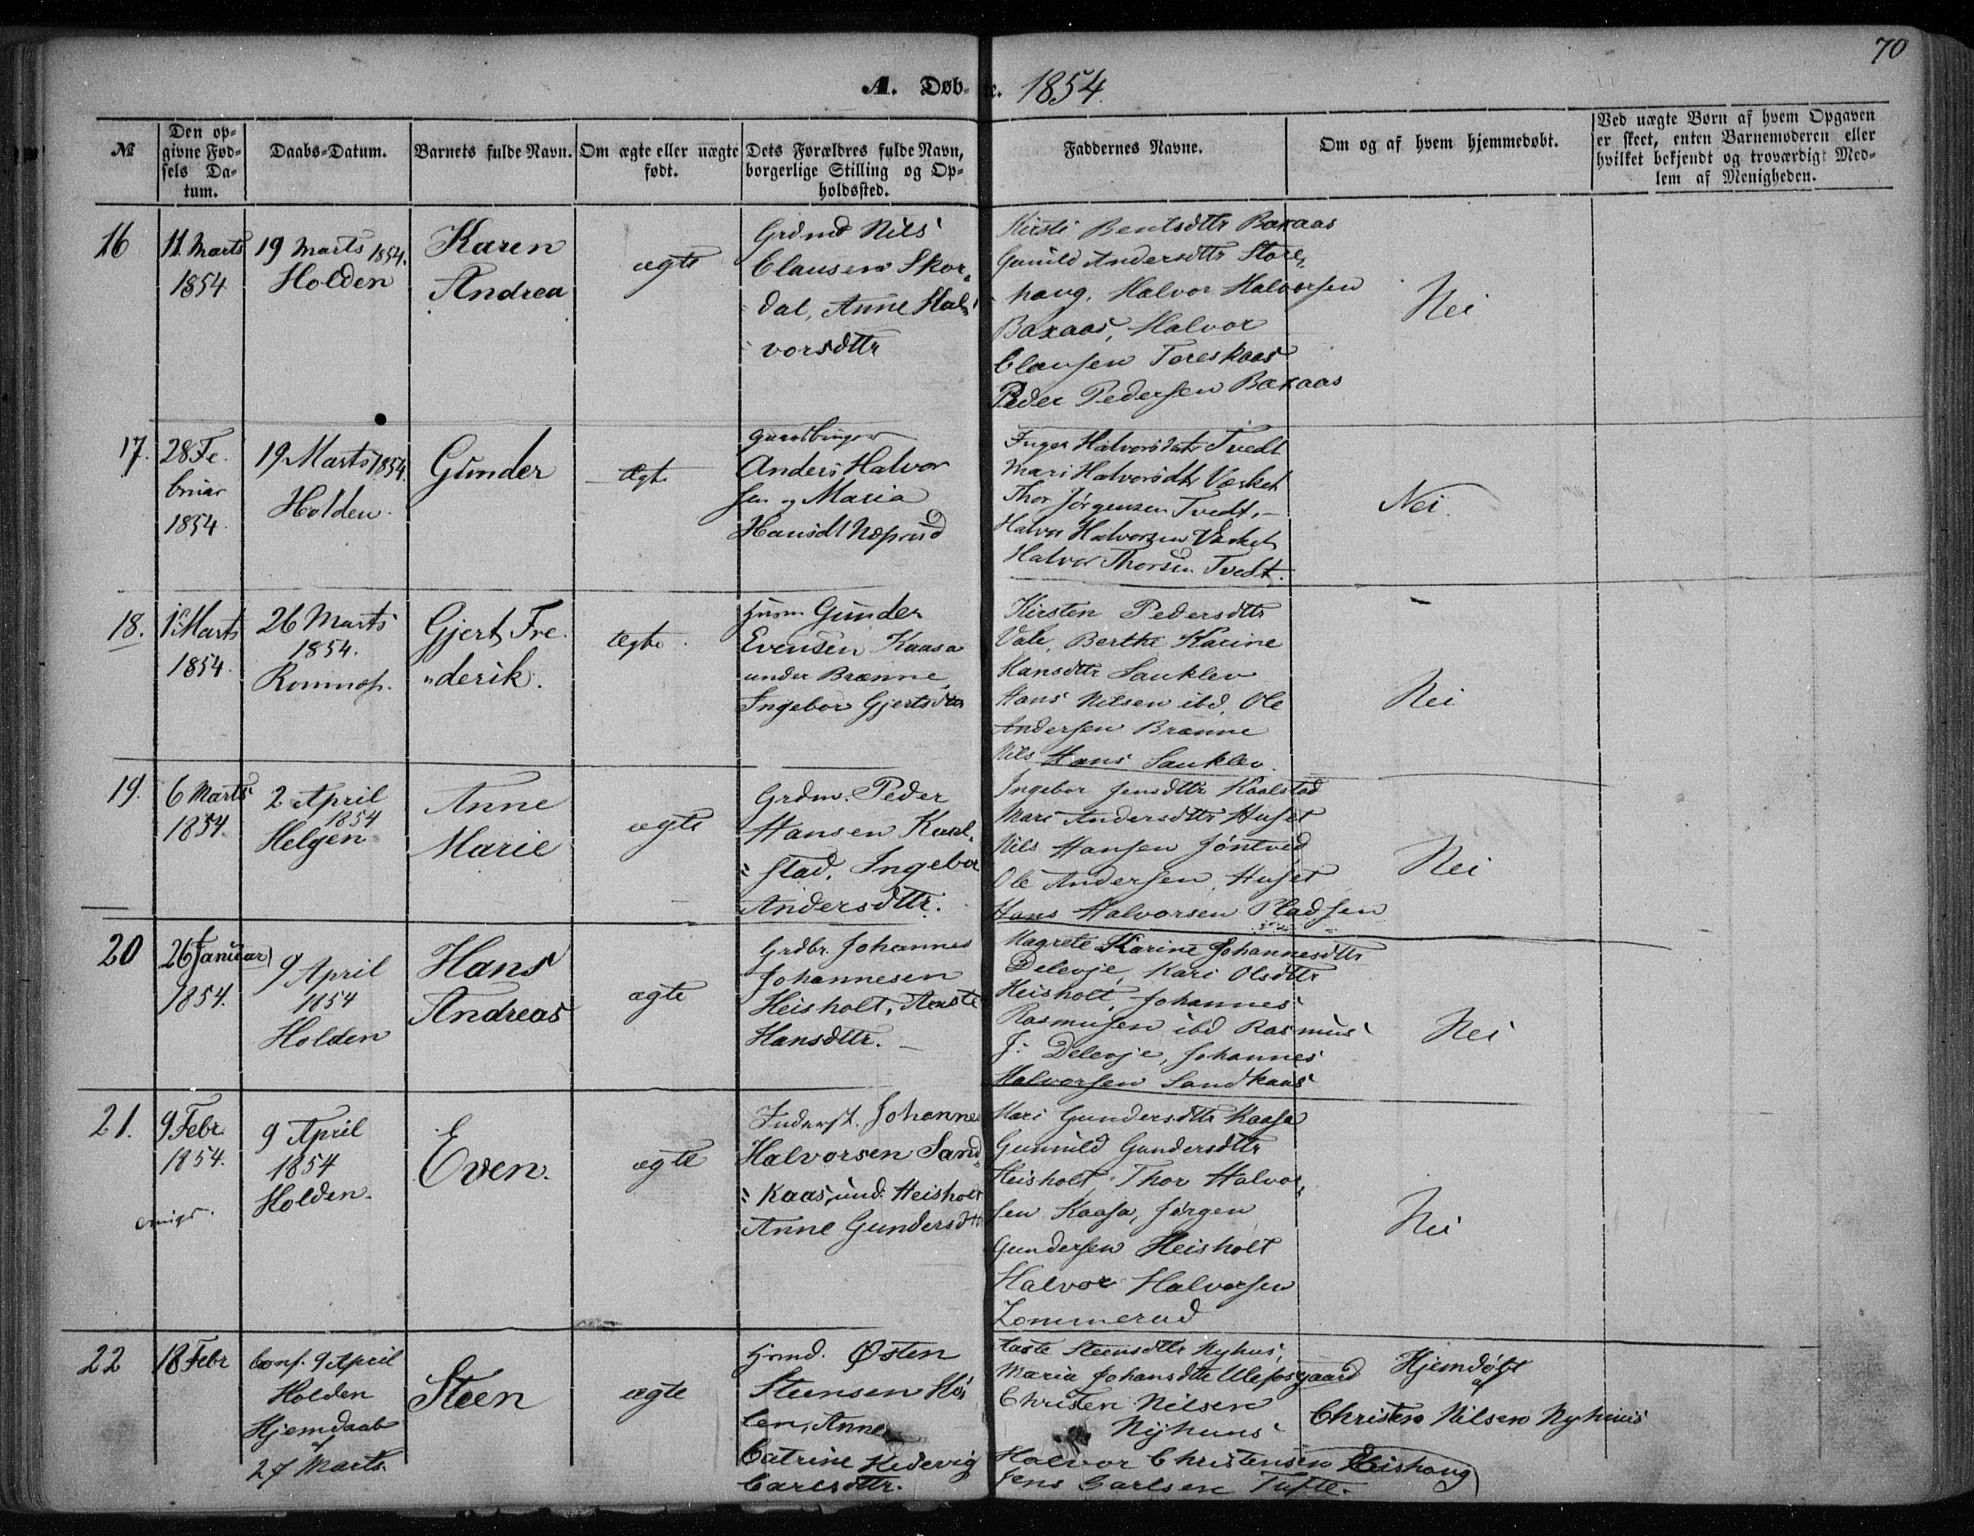 70
A. Døb-te. 1854.
№
Den op-
givne Fød-
sels Da-
tum.
Daabs-Datum.
Barnets fulde Navn.
Om ægte eller uægte
født.
Dets Forældres fulde Navn,
borgerlige Stilling og Op-
holdssted.
Faddernes Navne.
Om og af hvem hjemmedøbt.
Ved uægte Børn af hvem Opgaven
er skeet, enten Barnemoderen eller
hvilket bekjendt og troværdigt Med-
lem af Menigheden.
16
11 Marts
1854
19 Marts 1854.
Holden
Karen
Andrea
ægte
Grdmd Nils
Clausen Skor-
dal, Anne Hal-
vorsdttr
Kirsti Bentsdttr Baxaas
Gunild Andersdttr Store-
haug, Halvor Halvorsen
Baxaas, Halvor
Clausen Toreskaas
Peder Pedersen Baxaas
Nei
17.
28 Fe-
bruar
1854.
19 Marts 1854.
Holden.
Gunder
Ægte
Anders Halvor
sen og Maria
Hansdt
Inger Halvorsdatr Tvedt
Mari Halvorsdtr Værket
Thor Jörgensen Tvedt,
Halvor Halvorsen Værket
Halvor Thorsen Tvedt.
Nei.
18.
1 Marts
1854.
26 Marts
1854.
Romnæs.
Gjert Fre-
derik.
Ægte.
Husm Gunder
Evensen Kaasa
under Brænne,
Ingebor Gjertsdttr
Kirsten Pedersdttr
Vale, Berthe Karine
Hansdttr Sauklev
Hans Nilsen ibd, Ole
Andersen Brænne
Nils Hans Sauklev.
Nei
19.
6 Marts
1854.
2 April
1854
Helgen
Anne
Marie
ægte
Grdm. Peder
Hansen Kaal-
stad, Ingebor
Andersdttr.
Ingebor Jensdttr Kaalstad
Mari Andersdttr Huset
Nils Hansen Jöntvedt
Ole Andersen Huset
Hans Halvorsen Pladsen
Nei
20
26 Januar
1854.
9 April
1854
Holden
Hans
Andreas
ægte
Grdbr. Johannes
Johannesen
Heisholt, Aaste
Hansdttr.
Magrete Karine Johannesdttr
Deleeje, Kari Olsdttr
Heisholt, Johannes
Rasmusen ibd Rasmus
J. Deleeje, Johannes
Halvorsen Sandkaas
Nei
21.
9 Febr.
1854.
9 April
1854
Holden.
Even.
ægte
Inderst. Johannes
Halvorsen Sand-
kaas, und. Heisholt
Anne Gundersdttr
Mari Gundersdttr Kaasa
Gunnild Gundersdttr
Heisholt, Thor Halvor-
sen Kaasa, Jörgen
Gundersen Heisholt
Halvor Halvorsen
Zommerud
Nei
22
18 Febr
Conf. 9 April
Holden
Hjemdaab
af
27 Marts.
Steen
ægte
Østen
Steensen
Anne
Catrine Hedevig
Carlsdttr.
Aaste Steensdttr Nyhus,
Maria Johansdttr Ulefosgaard
Christen Nilsen
Nyhuus
Halvor Christensen Leishaug
Jens Carlsen Tufte.
Hjemdöbt
af
Christen Nilsen Nyhuus